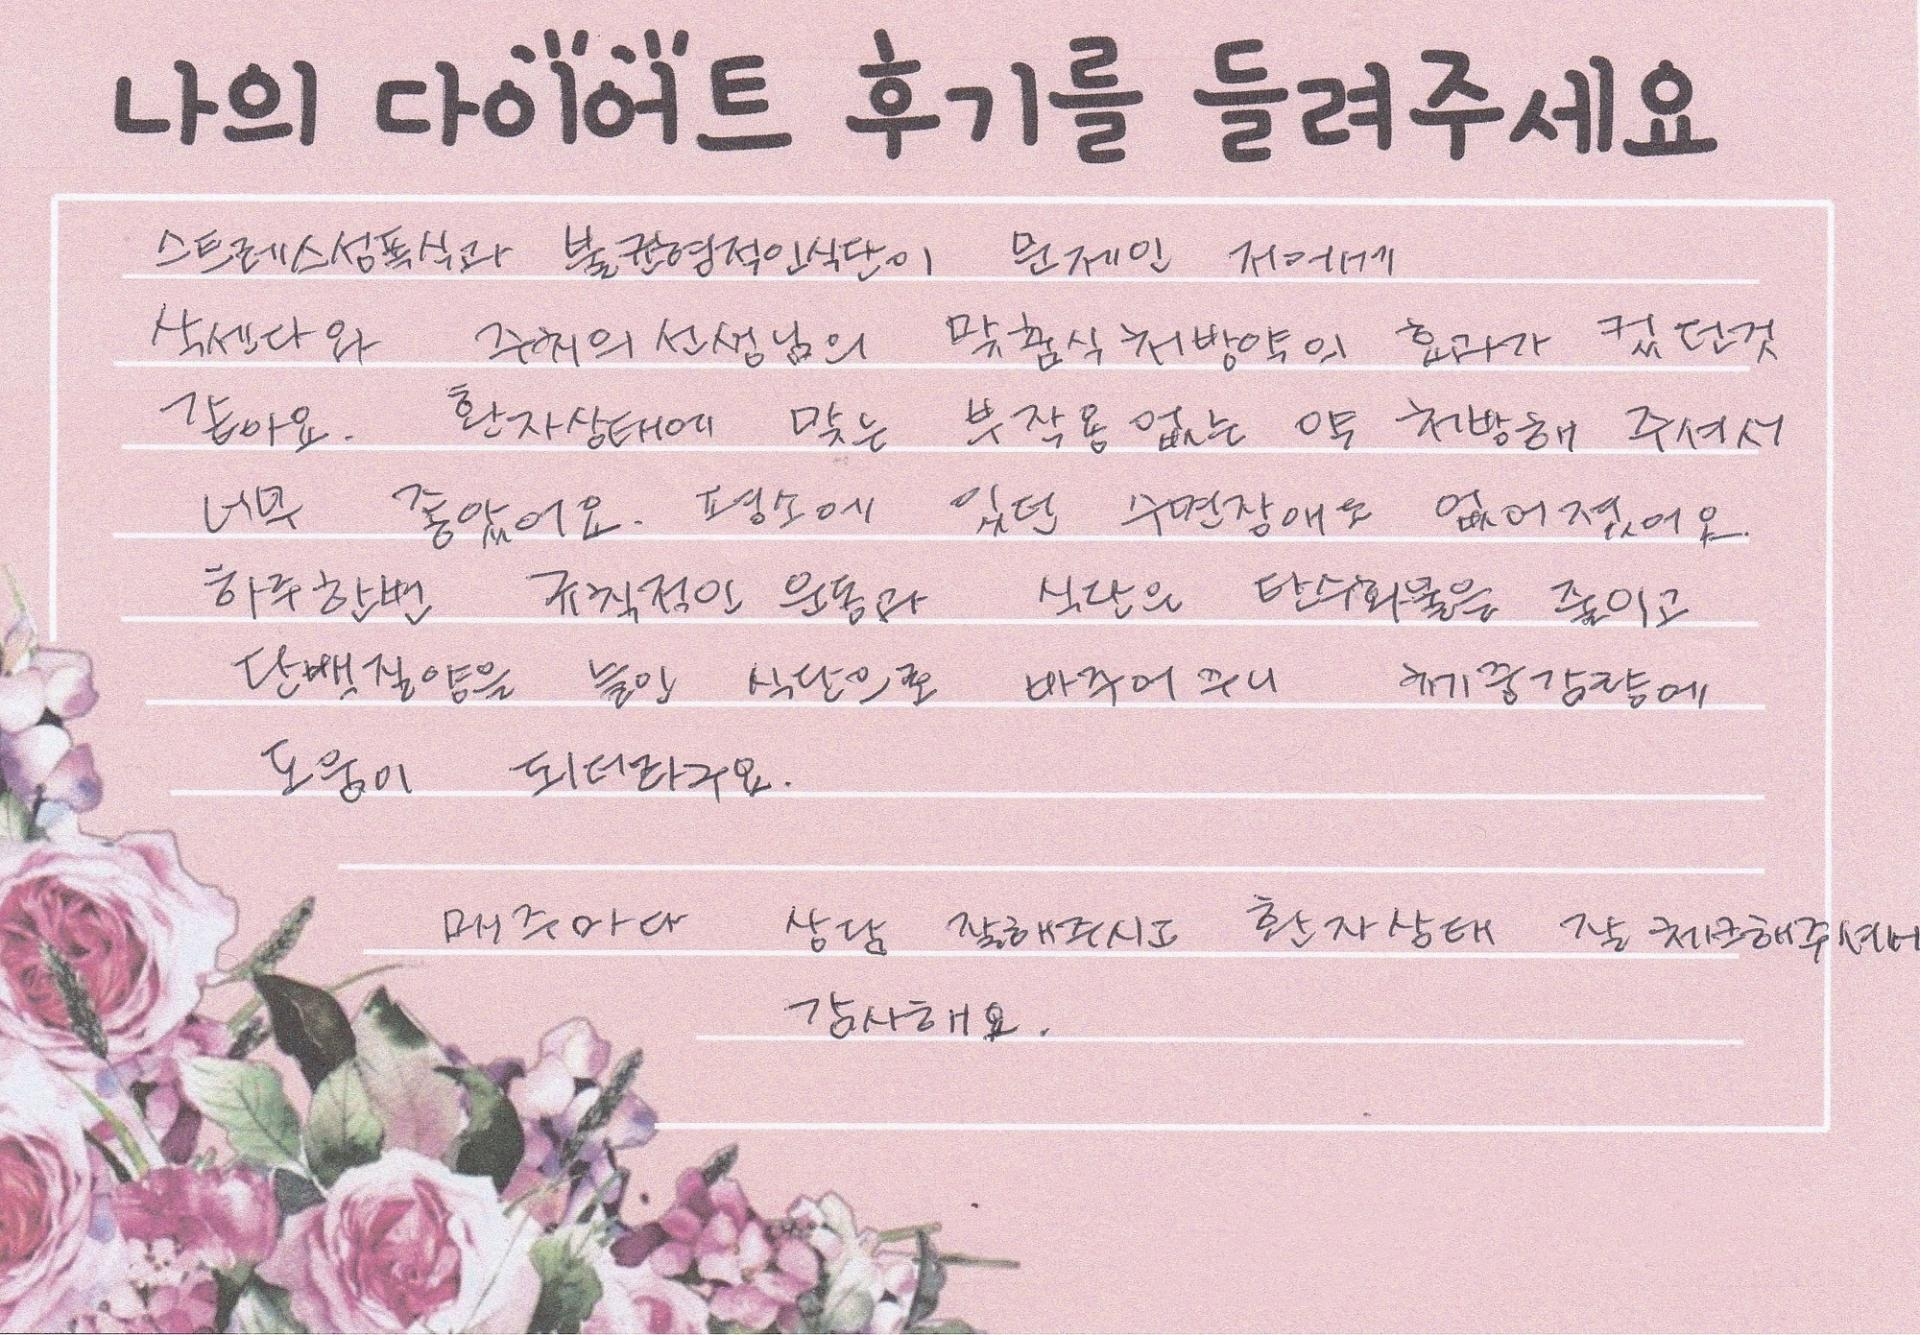 나의 다이어트 후기를 들려주세요
스트레스성폭식과 불균형적인식단이 문제인 저에게
삭센다와 주치의선생님의 맞춤식처방약의 효과가 컸던것
같아요. 환자상태에 맞는 부작용없는 약 처방해 주셔서
너무 좋았어요. 평소에 있던 수면장애도 없어졌어요.
하루한번 규칙적인 운동과 식단의 탄수화물을 줄이고
단백질양을 늘인 식단으로 바꾸어주니 체중감량에
도움이 되더라구요.
매주마다 상담 잘해주시고 환자상태 잘 체크해주셔서
감사해요.